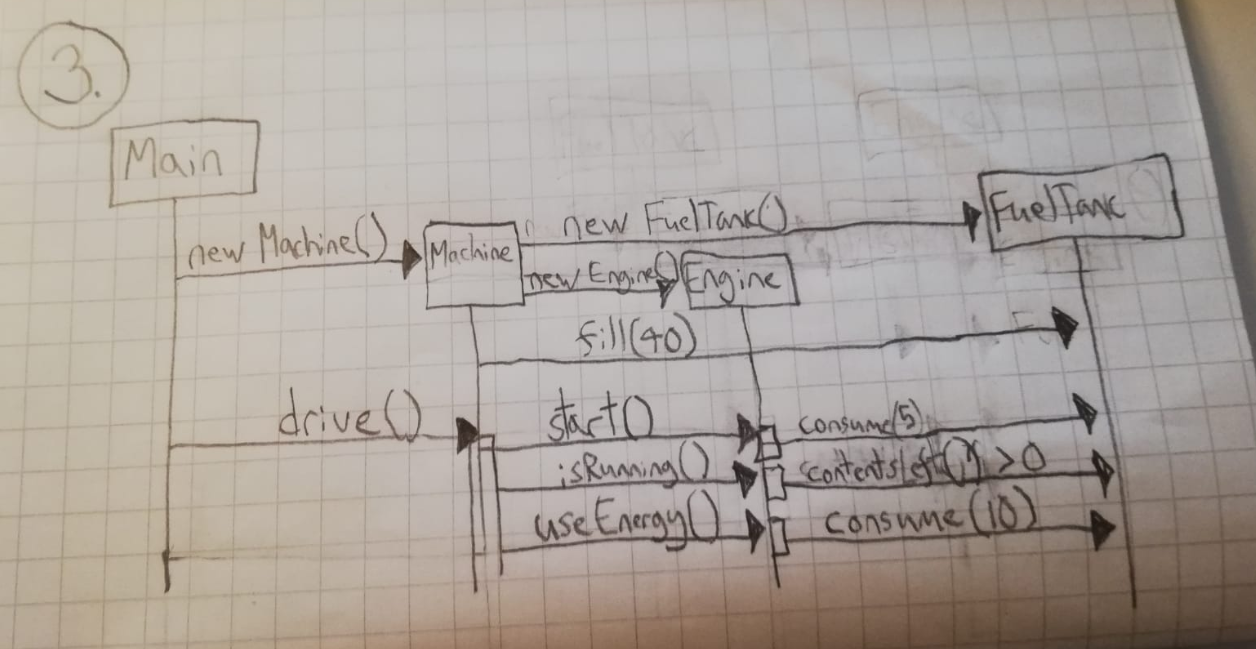 3.
Main
new Machine()
Machine
new FuelTank()
FuelTank
new Engine()
Engine
fill(40)
drive()
start()
consume(5)
isRunning()
contentsLeft() > 0
useEnergy()
consume(10)